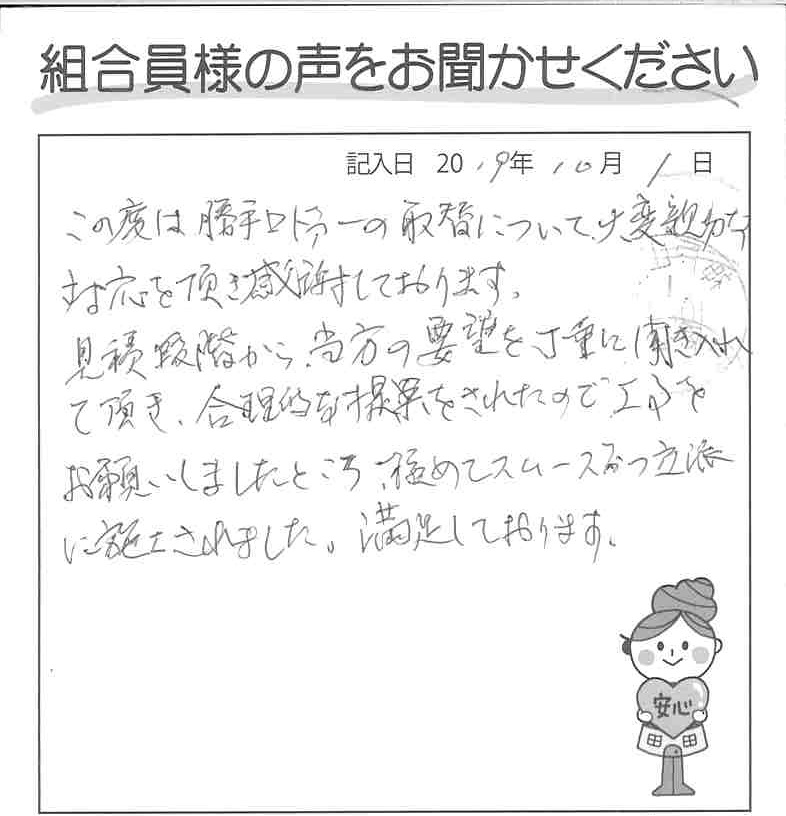 組合員様の声をお聞かせください
記入日 2019年 10月 1日
この度は勝手口ドアーの取替について、大変親切な
対応を頂き感謝しております。
見積段階から、当方の要望を丁重に聞き入れ
て頂き、合理的な提案をされたので工事を
お願いしましたところ、極めてスムース且つ立派
に施工されました。満足しております。
安心